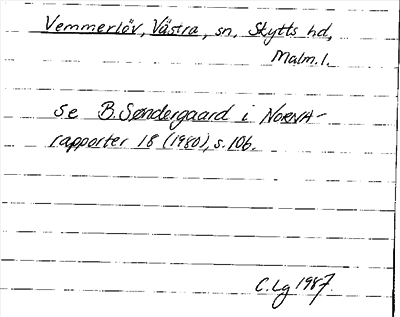 Vemmerlöv, Västra, sn, Skytts hd,
Malm. l.
se B. Søndergaard i NORNA-
rapporter 18 (1980), s. 106.
C. Lg 1987.